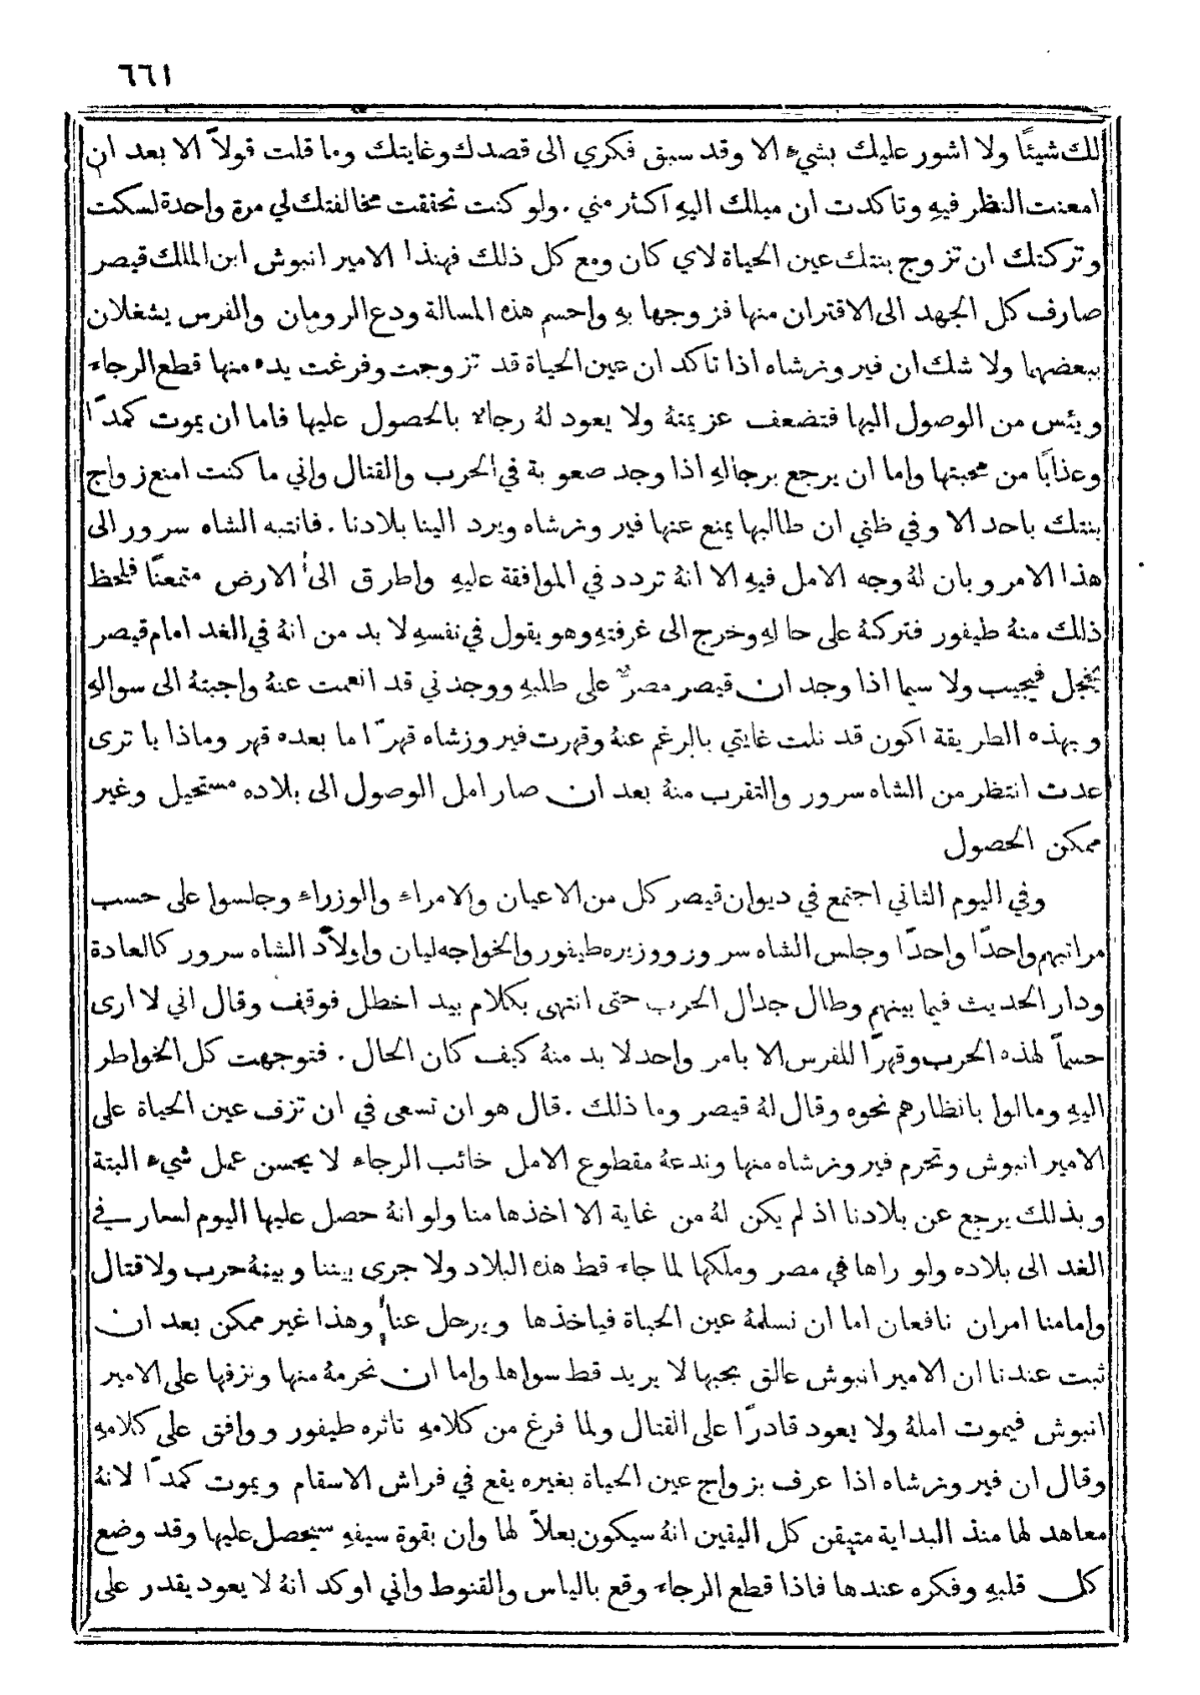 ٦٦١
لك شيئًا ولا اشور عليك بشيءٍ الا وقد سبق فكري الى قصدك وغايتك وما قلت قولاً الا بعد ان
امعنت النظر فيهِ وتاكدت ان ميلك اليهِ اكثر مني . ولو كنت تحققت مخالفتك لي مرة واحدة لسكت
وتركتك ان تزوج بنتك عين الحياة لاي كان ومع كل ذلك فهنذا الامير انبوش ابن الملك قيصر
صارف كل الجهد الى الاقتران منها فزوجها بهِ واحسم هذه المسالة ودع الرومان والفرس يشغلان
ببعضهما ولا شك ان فيروزشاه اذا تاكد ان عين الحياة قد تزوجت وفرغت يده منها قطع الرجاء
ويئس من الوصول اليها فتضعف عزيمتهُ ولا يعود لهُ رجاء بالحصول عليها فاما ان يموت كمدًا
وعذابًا من محبتها واما ان يرجع برجالهِ اذا وجد صعوبة في الحرب والقتال واني ما كنت امنع زواج
بنتك باحد الا وفي ظني ان طالبها يمنع عنها فيروزشاه ويرد الينا بلادنا . فانتبه الشاه سرور الى
هذا الامر وبان لهُ وجه الامل فيهِ الا انهُ تردد في الموافقة عليهِ واطرق الى الارض متمعنًا فلحظ
ذلك منهُ طيفور فتركهُ على حالهِ وخرج الى غرفتهِ وهو يقول في نفسهِ لا بد من انهُ في الغد امام قيصر
يخجل فيجيب ولا سيما اذا وجد ان قيصر مصرٌّ على طلبهِ ووجدني قد انعمت عنهُ واجبتهُ الى سوالهِ
وبهذه الطريقة اكون قد نلت غايتي بالرغم عنهُ وقهرت فيروزشاه قهرًا ما بعده قهر وماذا يا ترى
عدت انتظر من الشاه سرور والتقرب منهُ بعد ان صار امل الوصول الى بلاده مستحيل وغير
ممكن الحصول
وفي اليوم الثاني اجتمع في ديوان قيصر كل من الاعيان والامراء والوزراء وجلسوا على حسب
مراتبهم واحدًا واحدًا وجلس الشاه سرور ووزيره طيفور والخواجه ليان واولاد الشاه سرور كالعادة
ودار الحديث فيما بينهم وطال جدال الحرب حتى انتهى بكلام بيد اخطل فوقف وقال اني لا ارى
حسماً لهذه الحرب وقهرًا للفرس الا بامر واحد لا بد منهُ كيف كان الحال . فتوجهت كل الخواطر
اليهِ ومالوا بانظارهم نحوه وقال لهُ قيصر وما ذلك . قال هو ان نسعى في ان تزف عين الحياة على
الامير انبوش وتحرم فيروزشاه منها وندعهُ مقطوع الامل خائب الرجاء لا يحسن عمل شيء البتة
وبذلك يرجع عن بلادنا اذ لم يكن لهُ من غاية الا اخذها منا ولو انهُ حصل عليها اليوم لسار في
الغد الى بلاده ولو راها في مصر وملكها لما جاء قط هذه البلاد ولا جرى بيننا وبينهُ حرب ولا قتال
وامامنا امران نافعان اما ان نسلمهُ عين الحياة فياخذها ويرحل عنا وهذا غير ممكن بعد ان
ثبت عندنا ان الامير انبوش عالق بحبها لا يريد قط سواها واما ان نحرمهُ منها ونزفها على الامير
انبوش فيموت املهُ ولا يعود قادرًا على القتال ولما فرغ من كلامهِ تاثره طيفور ووافق على كلامهِ
وقال ان فيروزشاه اذا عرف بزواج عين الحياة بغيره يقع في فراش الاسقام ويموت كمدًا لانهُ
معاهد لها منذ البداية متيقن كل اليقين انهُ سيكون بعلاً لها وان بقوة سيفهِ سيحصل عليها وقد وضع
كل قلبهِ وفكره عندها فاذا قطع الرجاء وقع بالياس والقنوط واني اوكد انهُ لا يعود يقدر على